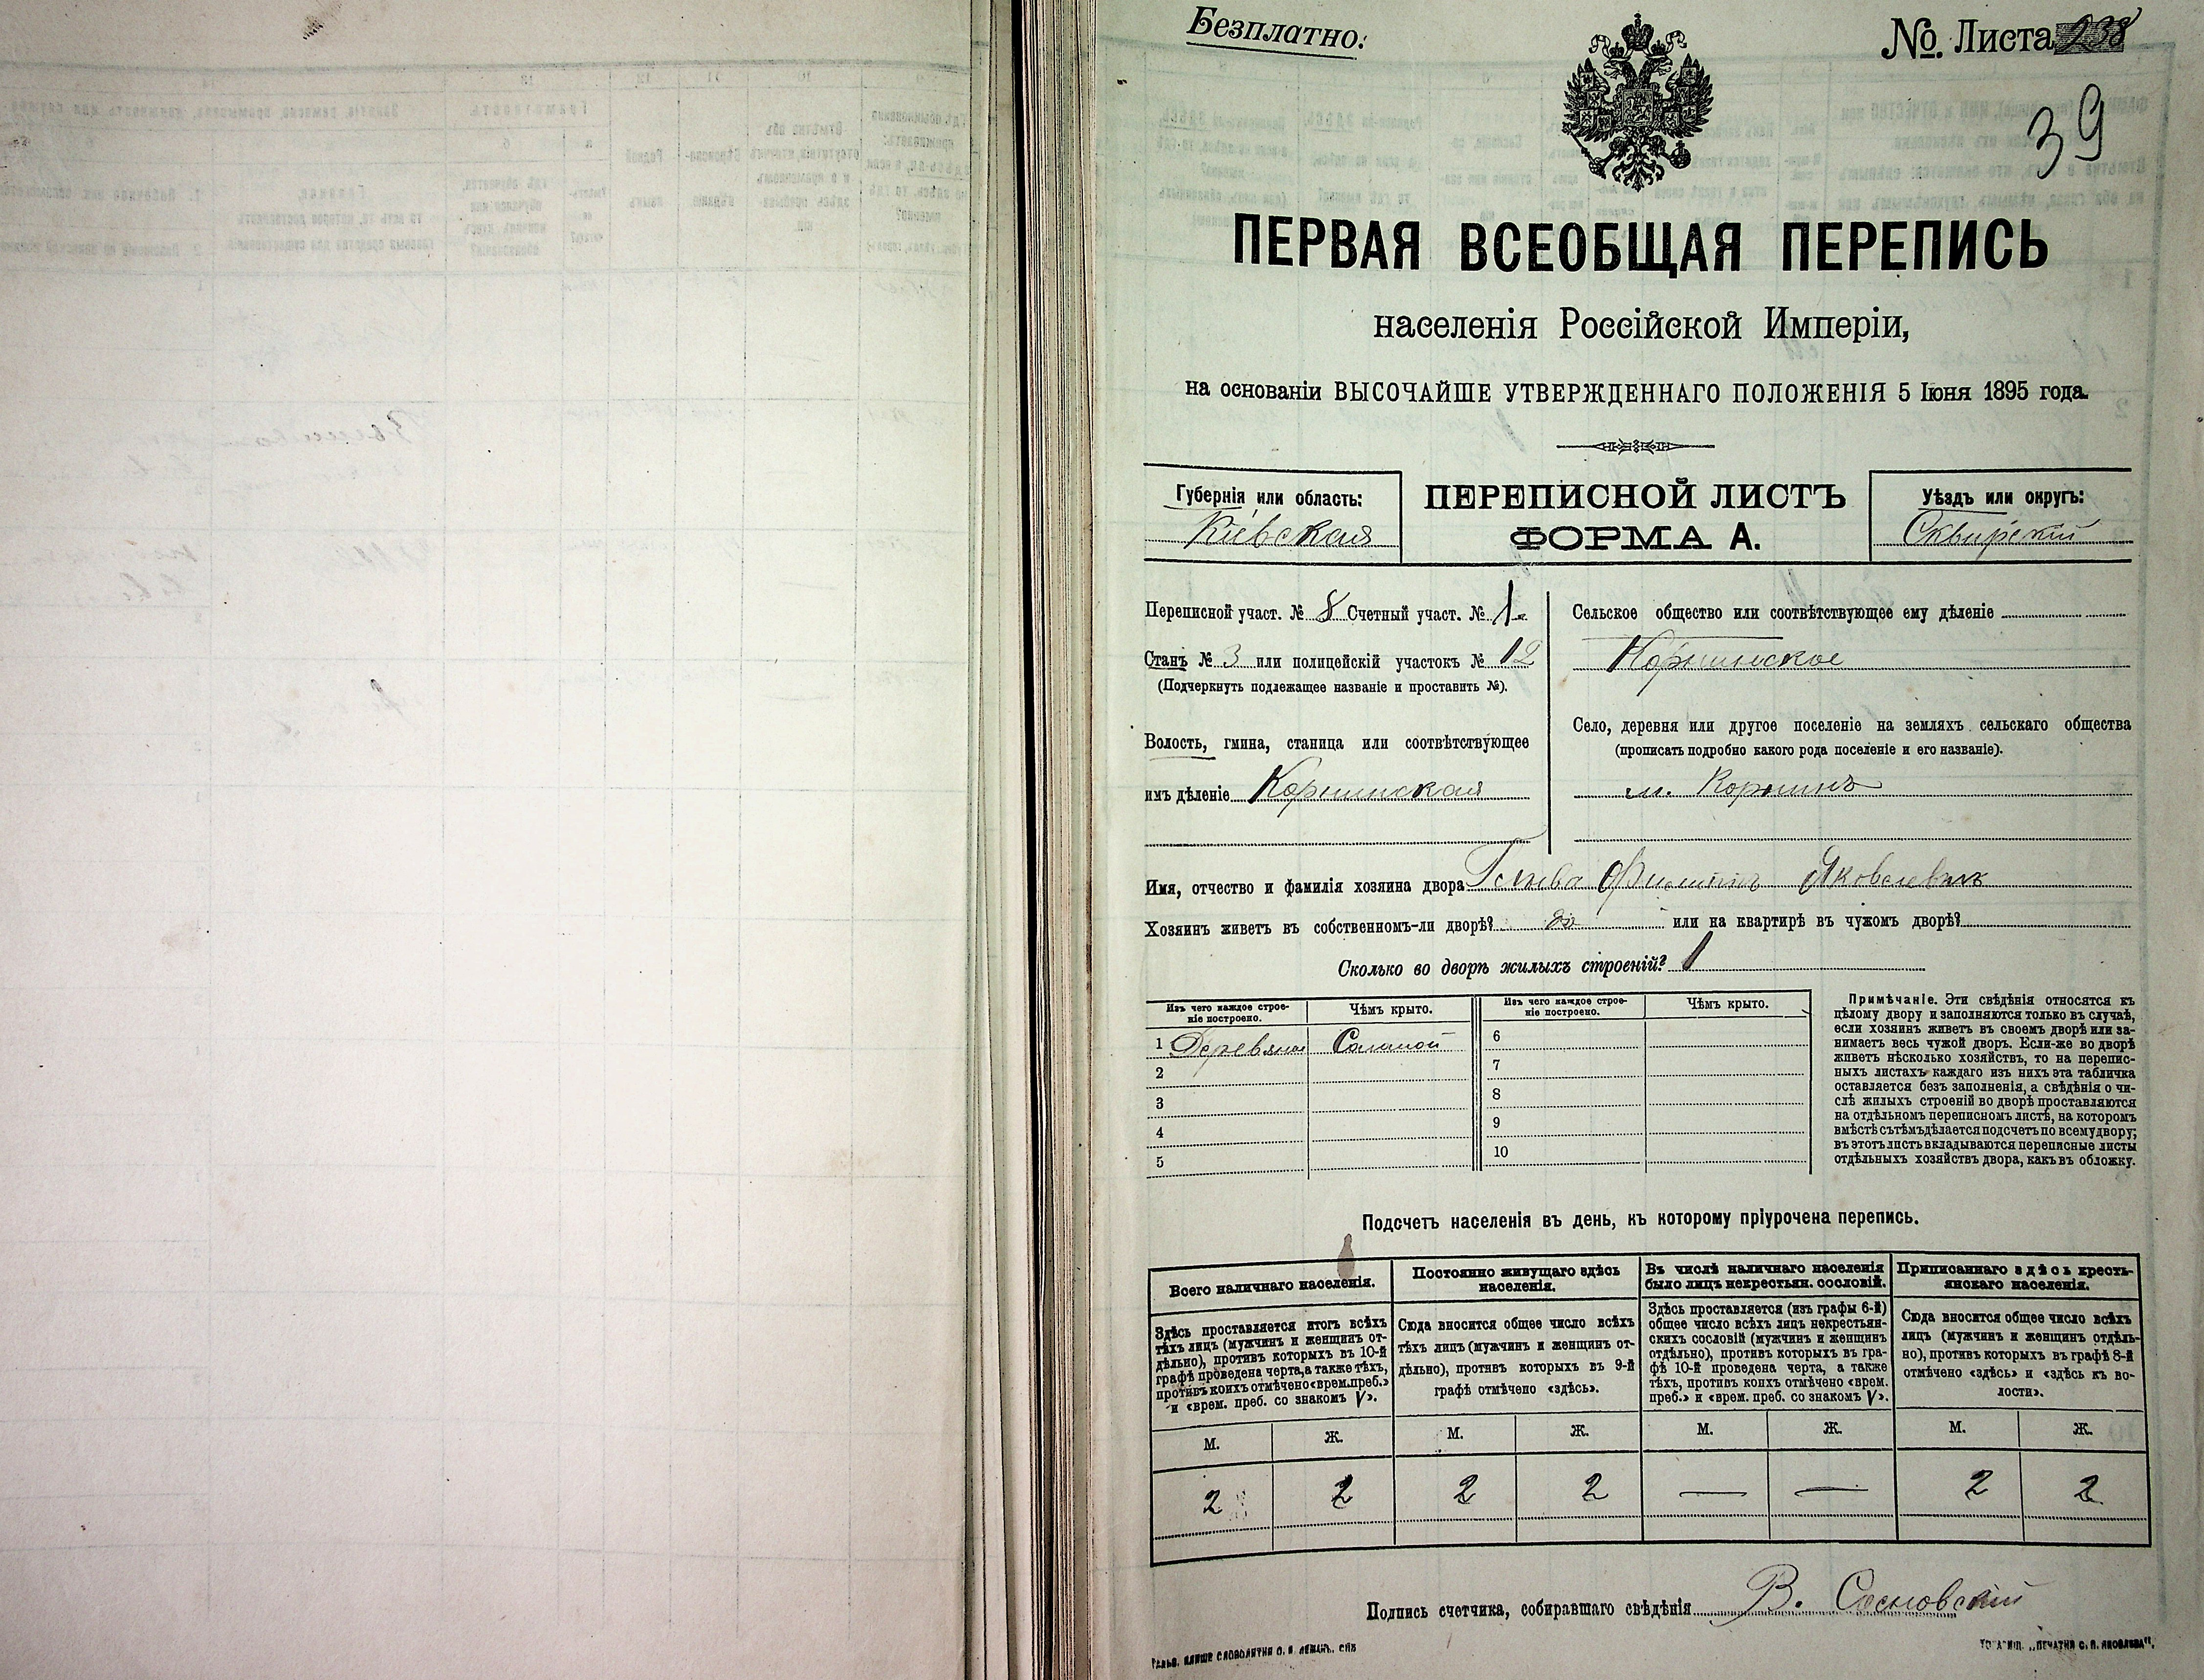 Безплатно.
№ Листа 238
39
ПЕРВАЯ ВСЕОБЩАЯ ПЕРЕПИСЬ
населенія Россійской Имперіи,
на основаніи ВЫСОЧАЙШЕ УТВЕРЖДЕННАГО ПОЛОЖЕНІЯ 5 Іюня 1895 года.
Губернія или область:
Кіевская
ПЕРЕПИСНОЙ ЛИСТЪ
ФОРМА А.
Уѣздъ или округъ:
Сквирскій
Переписной участ. № 8 Счетный участ. № 1
Станъ № 3 или полицейскій участокъ № 12
(Подчеркнуть подлежащее названіе и проставить №).
Волость, гмина, станица или соотвѣтствующее
имъ дѣленіе Корнинская
Сельское общество или соотвѣтствующее ему дѣленіе
Корнинское
Село, деревня или другое поселеніе на земляхъ сельскаго общества
(прописать подробно какого рода поселеніе и его названіе).
м. Корнинъ
Имя, отчество и фамилія хозяина двора Филиппъ Яковлевичъ
Хозяинъ живетъ въ собственномъ-ли дворѣ? да или на квартирѣ въ чужомъ дворѣ?
Сколько во дворѣ жилыхъ строеній? 1
Изъ чего каждое строе-
ніе построено.
Чѣмъ крыто.
Изъ чего каждое строе-
ніе построено.
Чѣмъ крыто.
1 Деревяное Соломой
2
3
4
5
6
7
8
9
10
Примѣчаніе. Эти свѣдѣнія относятся къ
цѣлому двору и заполняются только въ случаѣ,
если хозяинъ живетъ въ своемъ дворѣ или за-
нимаетъ весь чужой дворъ. Если-же во дворѣ
живетъ нѣсколько хозяйствъ, то на перепис-
ныхъ листахъ каждаго изъ нихъ эта табличка
оставляется безъ заполненія, а свѣдѣнія о чи-
слѣ жилыхъ строеній во дворѣ проставляются
на отдѣльномъ переписномъ листѣ, на которомъ
вмѣстѣ съ тѣмъ дѣлается подсчетъ по всему двору;
въ этотъ листъ вкладываются переписные листы
отдѣльныхъ хозяйствъ двора, какъ въ обложку.
Подсчетъ населенія въ день, къ которому пріурочена перепись.
Всего наличнаго населенія.
Здѣсь проставляется итогъ всѣхъ
тѣхъ лицъ (мужчинъ и женщинъ от-
дѣльно), противъ которыхъ въ 10-й
графѣ проведена черта, а также тѣхъ,
противъ коихъ отмѣчено «врем. преб.»
и «врем. преб. со знакомъ V».
Постоянно живущаго здѣсь
населенія.
Сюда вносится общее число всѣхъ
тѣхъ лицъ (мужчинъ и женщинъ от-
дѣльно), противъ которыхъ въ 9-й
графѣ отмѣчено «здѣсь».
Въ числѣ наличнаго населенія
было лицъ некрестьян. сословій.
Здѣсь проставляется (изъ графы 6-й)
общее число всѣхъ лицъ некрестьян-
скихъ сословій (мужчинъ и женщинъ
отдѣльно), противъ которыхъ въ гра-
фѣ 10-й проведена черта, а также
тѣхъ, противъ коихъ отмѣчено «врем.
преб.» и «врем. преб. со знакомъ V».
Приписаннаго здѣсь кресть-
янскаго населенія.
Сюда вносится общее число всѣхъ
лицъ (мужчинъ и женщинъ отдѣль-
но), противъ которыхъ въ графѣ 8-й
отмѣчено «здѣсь» и «здѣсь къ во-
лости».
М. Ж. М. Ж. М. Ж. М. Ж.
2 2 2 2 — — 2 2
Подпись счетчика, собиравшаго свѣдѣнія В. Сосновскій